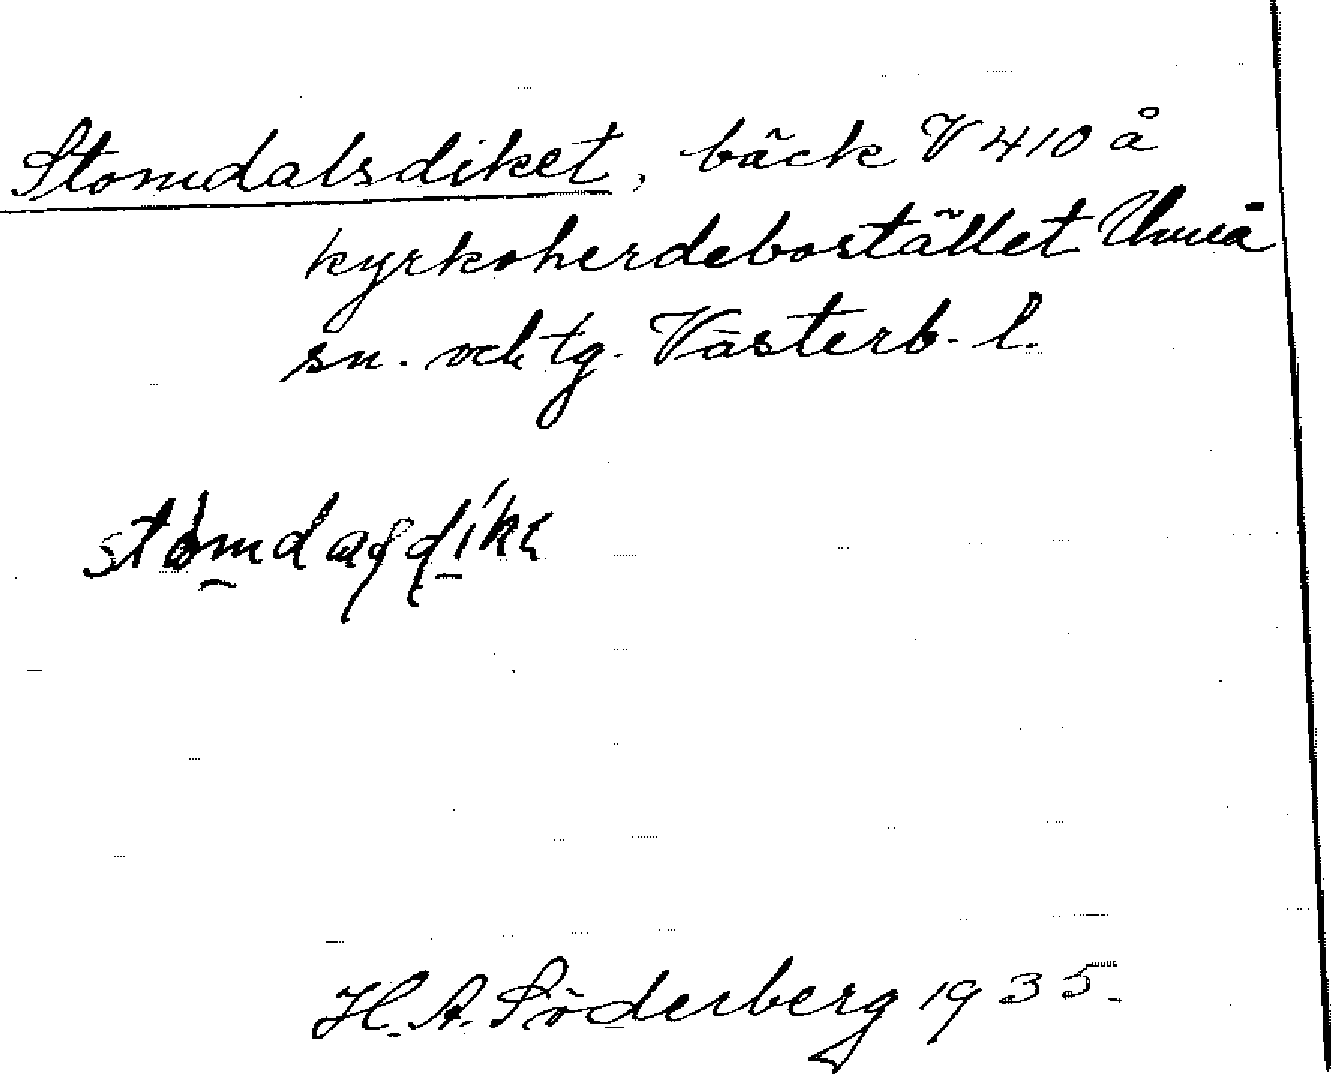 Stomdalsdiket, bäck V 410 å
kyrkoherdebostället Umeå
sn. och tg. Västerb. l.
H. A. Söderberg 1935.